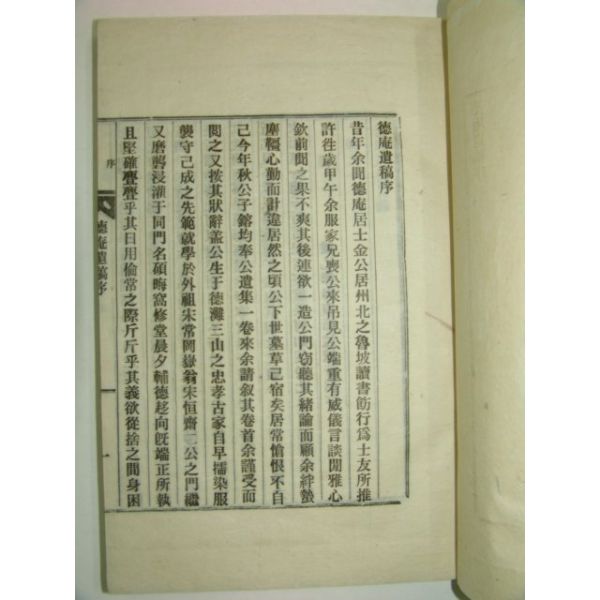 德庵遺稿序
昔年余聞德庵居士金公居州北之魯坡讀書飭行爲士友所推
許往歲甲午余服家兄喪公來吊見公端重有威儀言談閒雅心
欽前聞之果不爽其後連欲一造公門窃聽其緖論而顧余絆蟄
塵韁心勤而計違居然之頃公下世墓草已宿矣居常愴恨不自
已今年秋公子鎔均奉公遺集一卷來余請叙其卷首余謹受而
閱之又按其狀辭盖公生于德灘三山之忠孝古家自早擩染服
襲守己成之先範就學於外祖宋常岡嶽翁宋恒齋二公之門繼
又磨礱浸灌于同門名碩晦窩修堂晨夕輔德趍向旣端正所執
且堅確亹亹乎其日用倫常之際斤斤乎其義欲從捨之間身困
德庵遺稿序
序
一